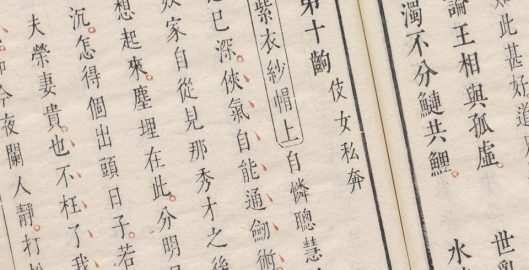 此甚好道
論王相與孤虛。世亂
濁不分鰱共鯉。水
第十齣 伎女私奔
紫衣紗帽上自憐聰慧
已深俠氣自能通劒術。
奴家自從見那秀才之後
想起來。塵埋在此。分明
沉。怎得個出頭日子。若
夫榮妻貴。也不枉了我
今夜闌人靜。打